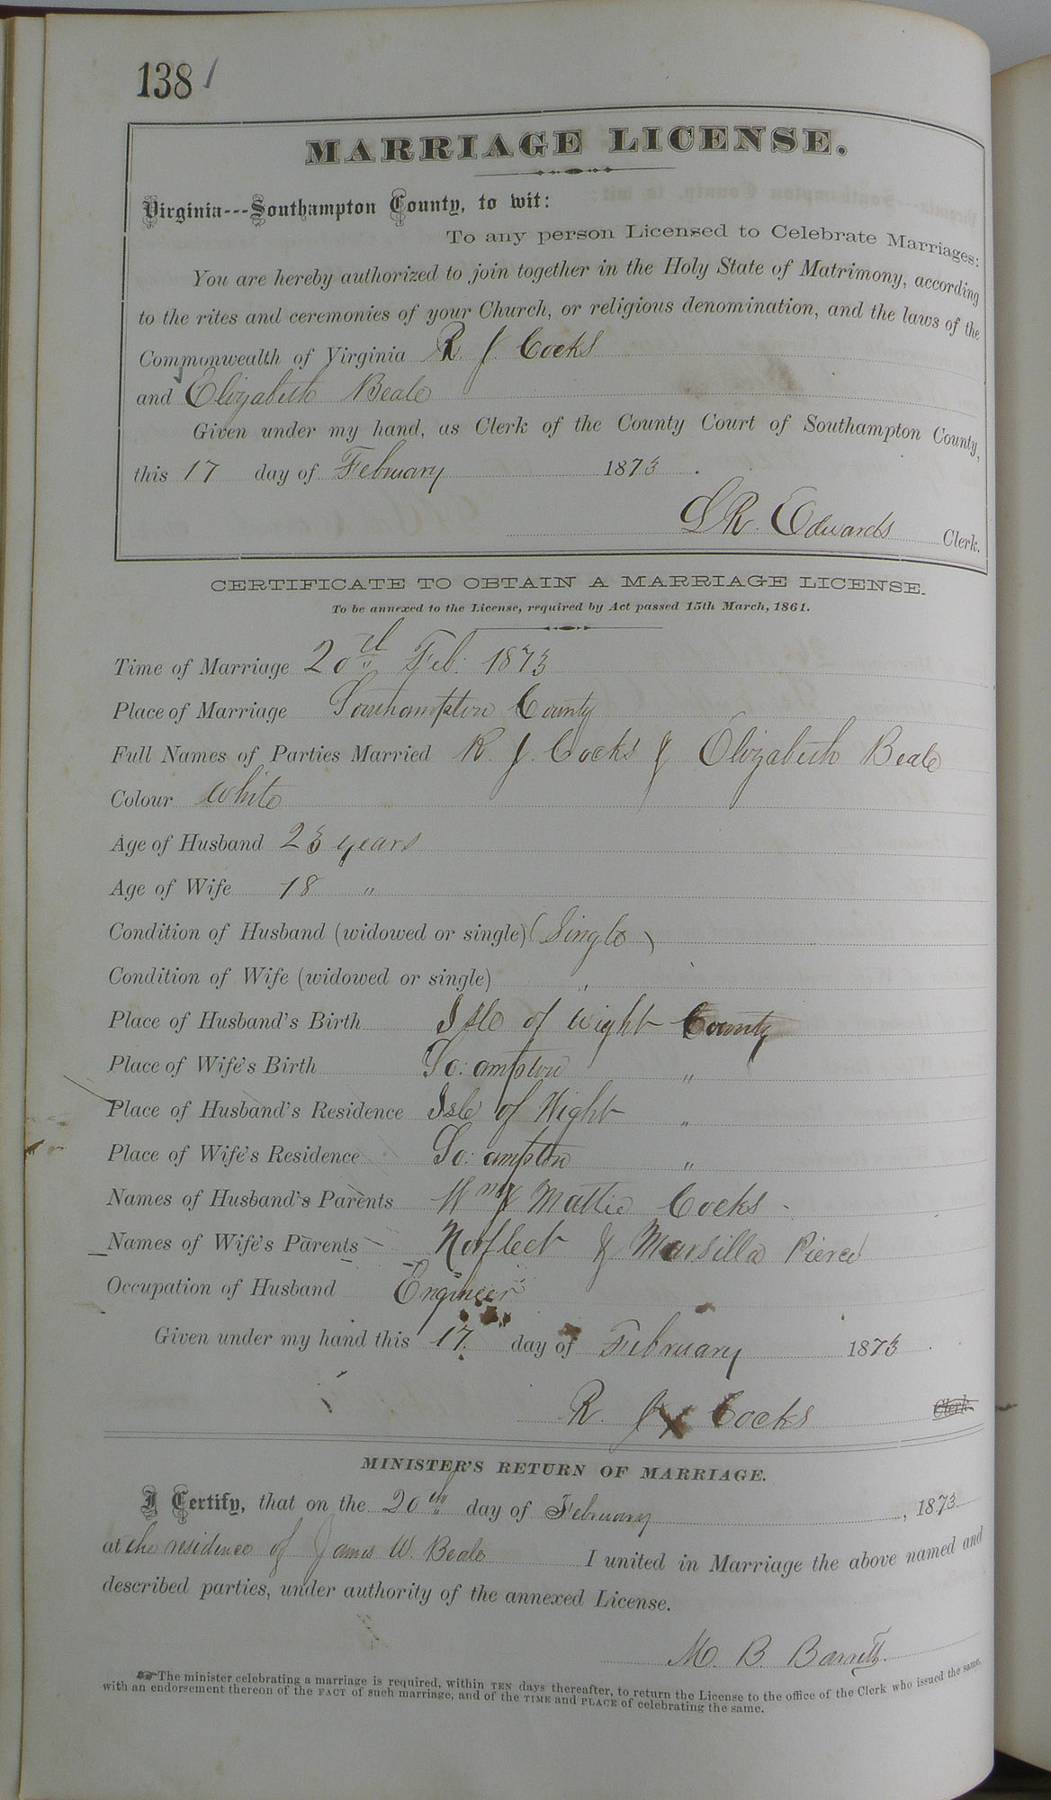 138 1
MARRIAGE LICENSE.
Virginia---Southampton County, to wit:
To any person Licensed to Celebrate Marriages:
You are hereby authorized to join together in the Holy State of Matrimony, according
to the rites and ceremonies of your Church, or religious denomination, and the laws of the
Commonwealth of Virginia R. J. Cocks
and Elizabeth Beale
Given under my hand, as Clerk of the County Court of Southampton County,
this 17 day of February 1873.
L R. Edwards Clerk.
CERTIFICATE TO OBTAIN A MARRIAGE LICENSE.
To be annexed to the License, required by Act passed 15th March, 1861.
Time of Marriage 20th Feb: 1873
Place of Marriage Southampton County
Full Names of Parties Married R. J. Cocks & Elizabeth Beale
Colour White
Age of Husband 23 years
Age of Wife 18 "
Condition of Husband (widowed or single) (Single)
Condition of Wife (widowed or single) "
Place of Husband's Birth Isle of Wight County
Place of Wife's Birth So: ampton "
Place of Husband's Residence Isle of Wight "
Place of Wife's Residence So: ampton "
Names of Husband's Parents Wm & Mattie Cocks -
Names of Wife's Parents Norfleet & Marsilla Pierce
Occupation of Husband Engineer
Given under my hand this 17. day of February 1873.
R. J. Cocks Clerk.
MINISTER'S RETURN OF MARRIAGE.
I Certify, that on the 20th day of February, 1873
at the residence of James W. Beale I united in Marriage the above named and
described parties, under authority of the annexed License.
M. B. Barrett.
The minister celebrating a marriage is required, within TEN days thereafter, to return the License to the office of the Clerk who issued the same,
with an endorsement thereon of the FACT of such marriage, and of the TIME and PLACE of celebrating the same.